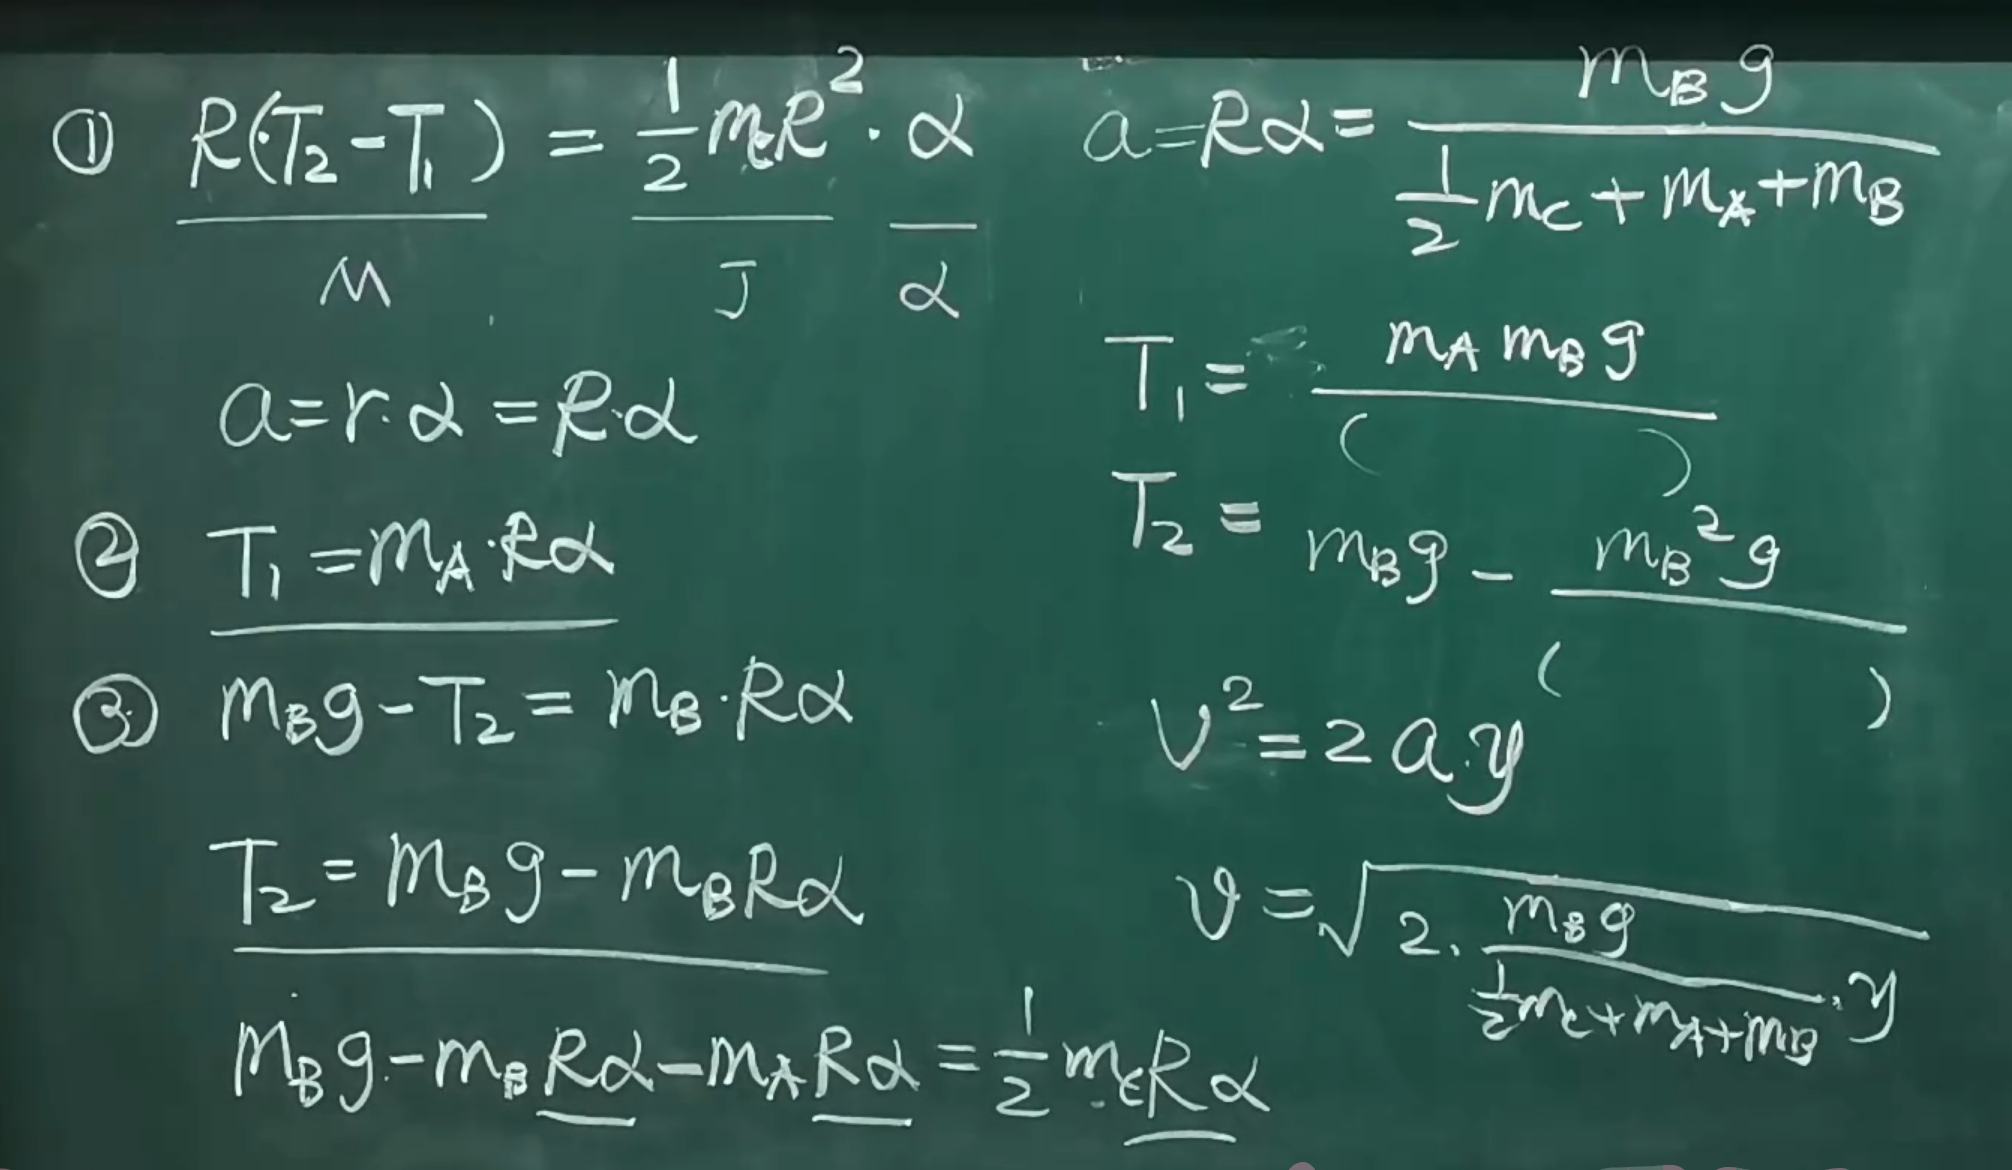 ① R(T₂-T₁) = ½m_cR² · α
M J α
a=r·α=R·α
② T₁=m_A·Rα
③ m_Bg-T₂=m_B·Rα
T₂=m_Bg-m_BRα
m_Bg-m_BRα-m_ARα=½m_cRα
a=Rα= m_Bg / (½m_c+m_A+m_B)
T₁= m_Am_Bg / ( )
T₂= m_Bg - m_B²g / ( )
v²=2a·y
v=√(2· m_Bg / (½m_c+m_A+m_B) ·y)